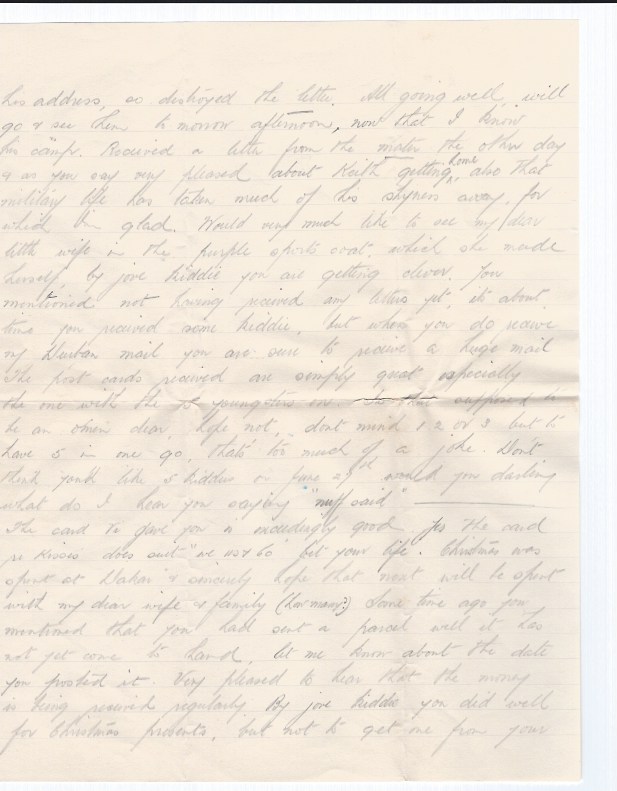 his address, so distroyed the letter. All going well, will
go & see them to morrow afternoon, now that I know
his camp. Received a letter from the mater the other day
& as you say very pleased about Keith getting home, also that
military life has taken much of his shyness away, for
which I'm glad. Would very much like to see my dear
little wife in the purple sports coat, which she made
herself, by jove kiddie you are getting clever. You
mentioned not having received any letters yet, its about
time you received some kiddie, but when you do receive
my Durban mail you are sure to receive a huge mail
The post cards received are simply great especially
the one with the 5 youngsters on. Is that supposed to
be an omen dear, hope not, dont mind 1 2 or 3 but to
have 5 in one go, thats too much of a joke. Don't
think you'd like 5 kiddies on June 23rd would you darling
what do I hear you saying "nuff said"
The card to give you is exceedingly good, yes the card
re kisses does suit "we us & Co" bet your life. Christmas was
spent at Dakar & sincerely hope that next will be spent
with my dear wife & family (how many?) Some time ago you
mentioned that you had sent a parcel well it has
not yet come to hand, let me know about the date
you posted it. Very pleased to hear that the money
is being received regularly By jove kiddie you did well
for Christmas presents, but not to get one from your